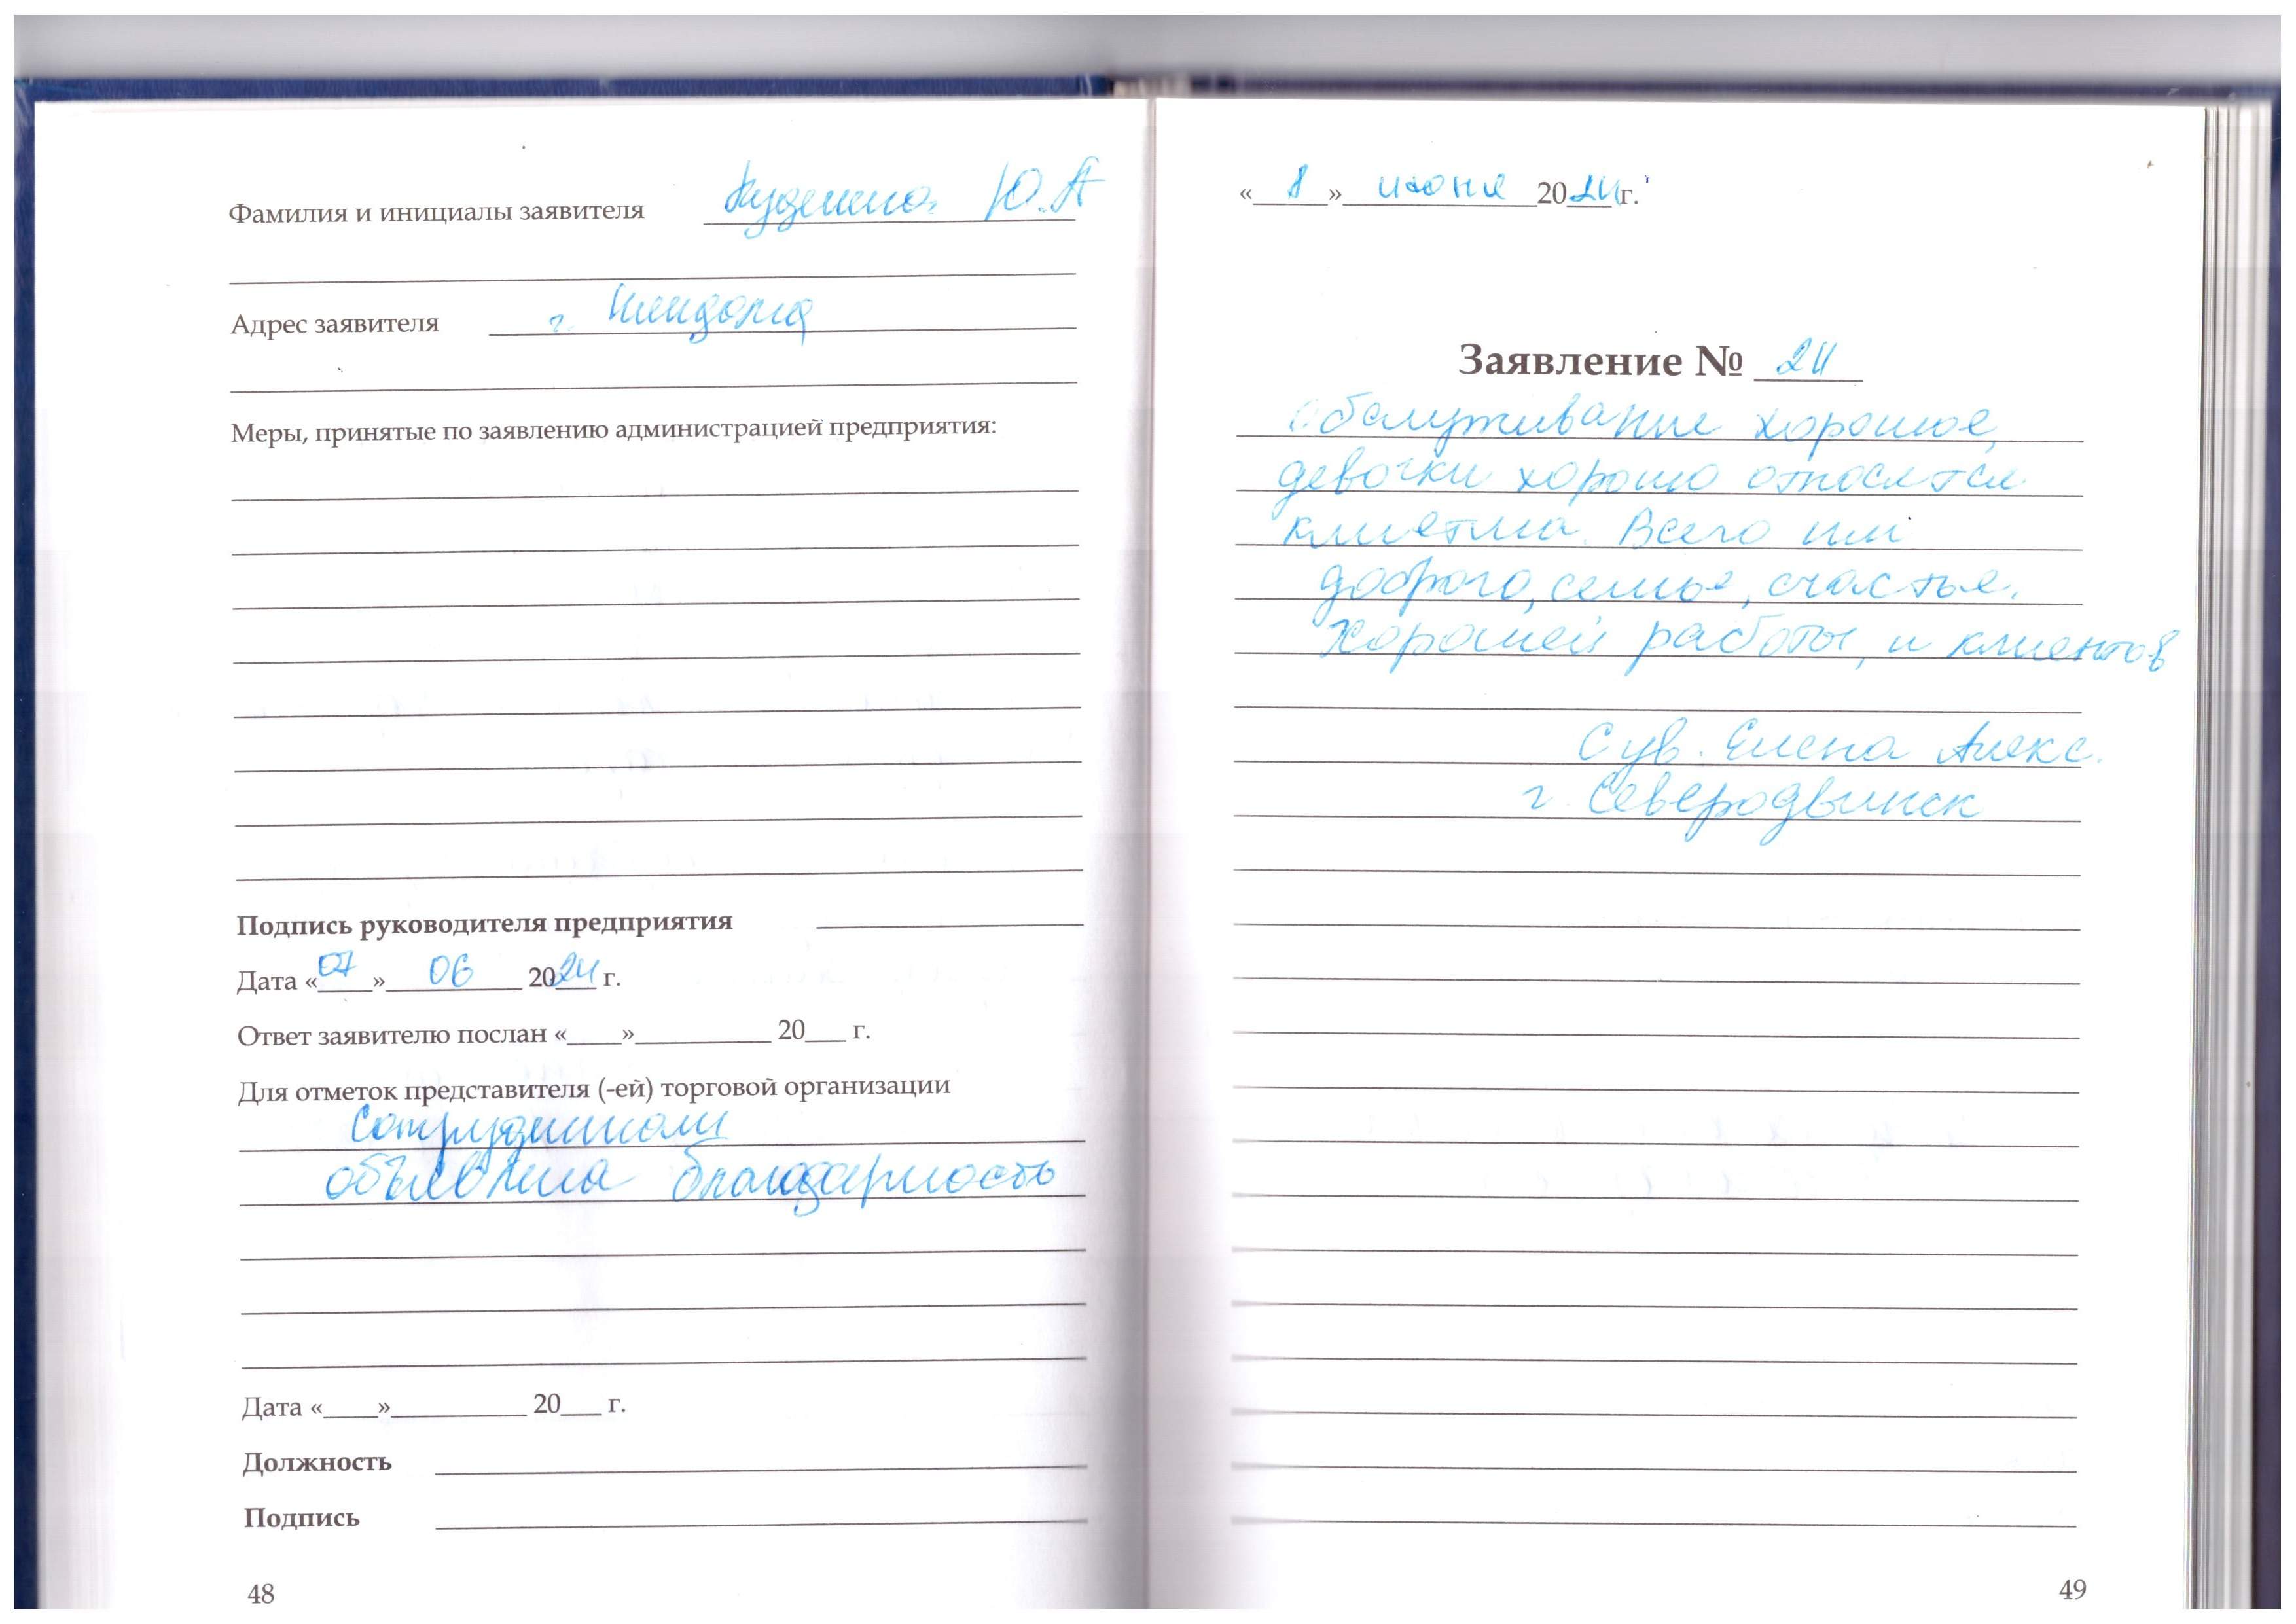 Фамилия и инициалы заявителя Ю.А
Адрес заявителя г. Няндома
Меры, принятые по заявлению администрацией предприятия:
Подпись руководителя предприятия
Дата «07» 06 2024 г.
Ответ заявителю послан «____»__________ 20___ г.
Для отметок представителя (-ей) торговой организации
Сотрудникам
объявлена благодарность
Дата «____»__________ 20___ г.
Должность
Подпись
48
«8» июня 2024 г.
Заявление № 24
Обслуживание хорошое,
девочки хорошо относятся
Всего им
доброго, семье, счастье.
Хорошей работы, и клиентов
Сув. Елена Алекс.
г. Северодвинск
49